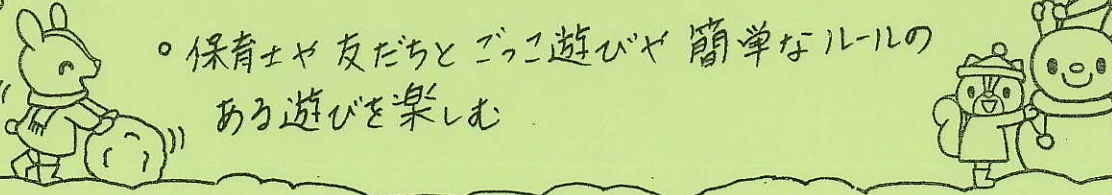 。保育士や友だちとごっこ遊びや簡単なルールの
ある遊びを楽しむ